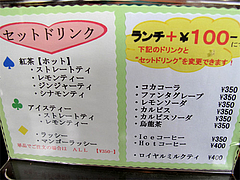 セットドリンク
紅茶【ホット】
・ストレートティ
・レモンティー
・ジンジャーティ
・シナモンティ
アイスティー
・ストレートティ
・レモンティー
・ラッシー
・マンゴーラッシー
単品でご注文の場合は ALL 【350-】
ランチ+¥100-で
下記のドリンクと
"セットドリンク"を変更できます!
・コカコーラ ¥350
・ファンタグレープ ¥350
・レモンソーダ ¥350
・カルピス ¥350
・カルピスソーダ ¥350
・烏龍茶 ¥350
・Iceコーヒー ¥400
・Hotコーヒー ¥400
・ロイヤルミルクティ ¥400